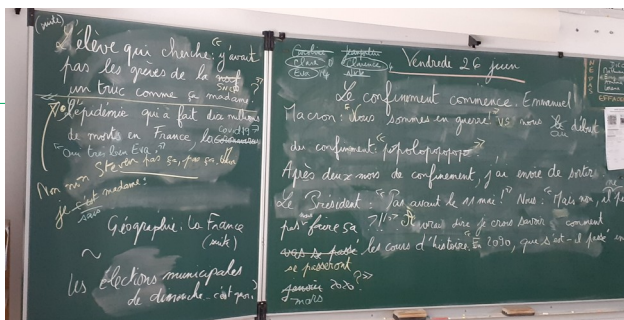 (suite)
L'élève qui cherche : "y'avait
pas les grèves de la SNCF
un truc comme ça madame ?"
L'épidémie qui a fait des millions
de morts en France, la covid19 ?
"Oui très bien Eva."
Steven pas ça, pas ça,
Non m
je sais c'est madame :
Géographie : La France
(suite)
~
Les élections municipales
de dimanche... c'est qui ?
Clara
Eva
Clémence
Vendredi 26 juin
Le confinement commence. Emmanuel
Macron : "Nous sommes en guerre !" VS nous au début
du confinement : "popolopopopo"
Après deux mois de confinement, j'ai envie de sortir,
Le Président : "Pas avant le 11 mai !" Nous : "Mais non, il
pas faire ça ?!!"
dire je crois savoir comment
vas se passé les cours d'histoire. "En 2090, que s'est-il passé en
se passeront
janvier 2020 ?"
mars
EFFA